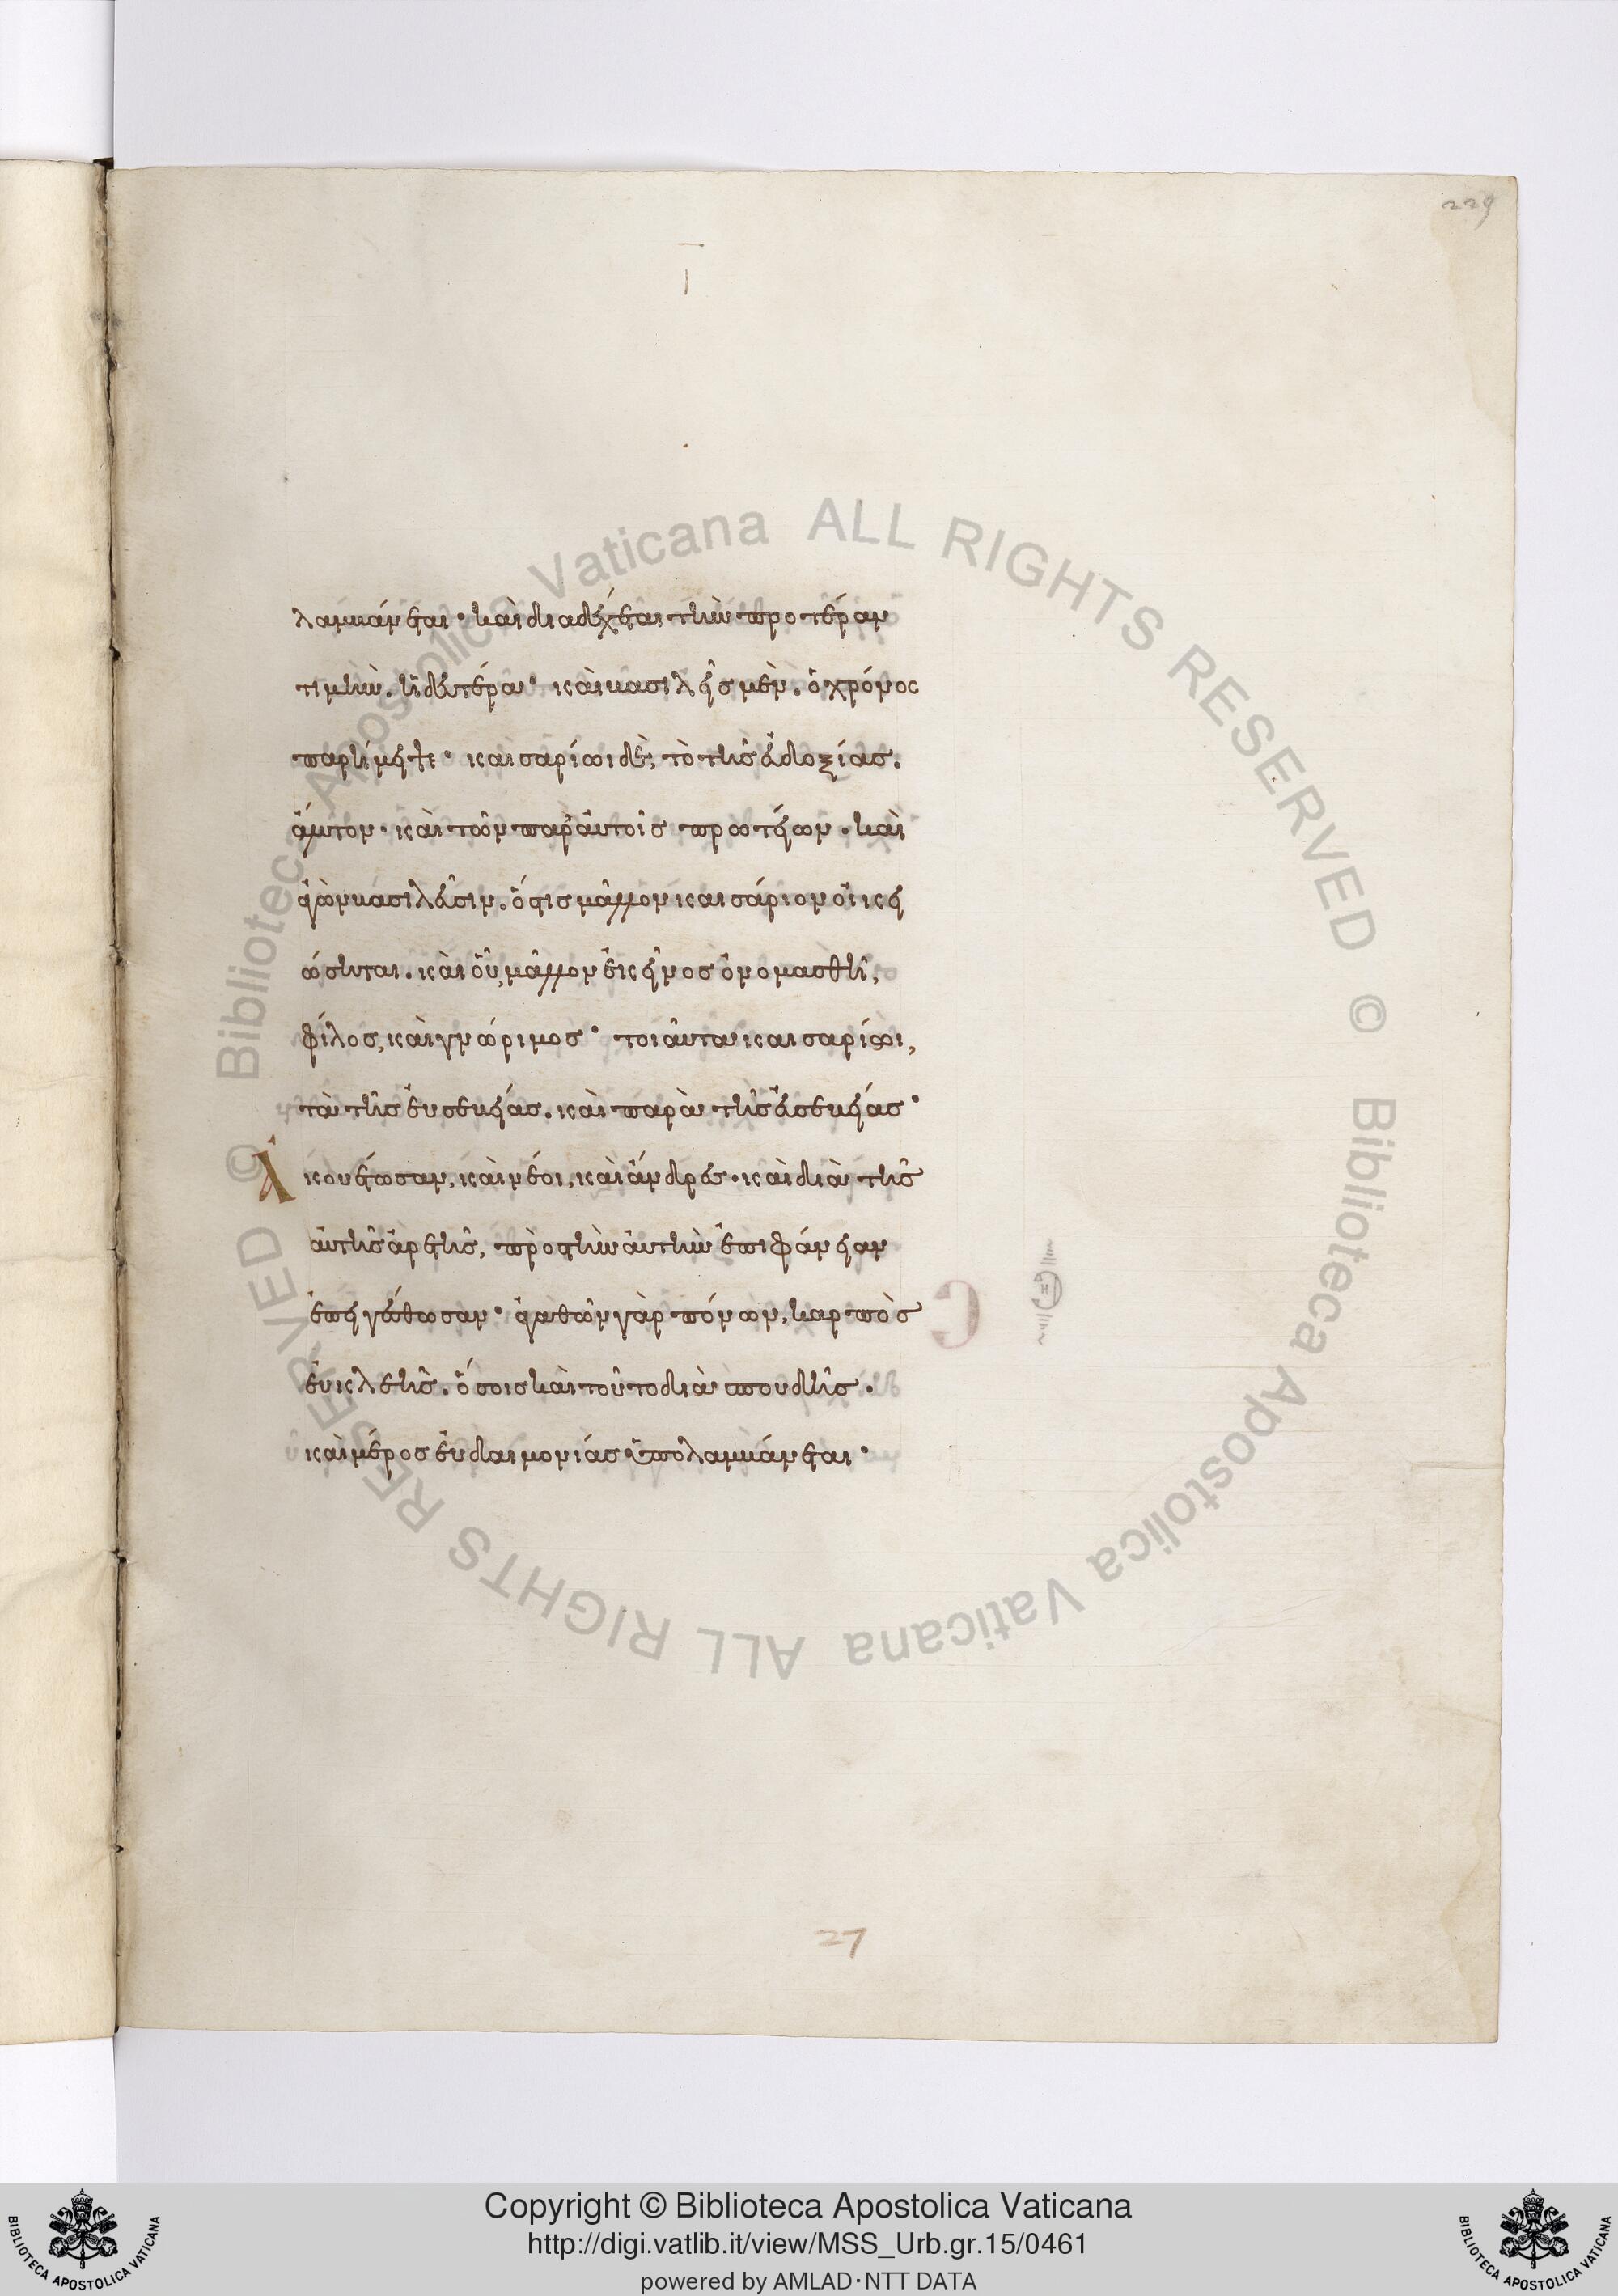 229
λαμβάνεται· καὶ διαδέχεται τὴν προτέραν
τιμὴν. ἡ δευτέρα· καὶ βασιλεῖς μὲν. ὁ χρόνος
παρήμειβε· καισαρίωι δὲ, τὸ τῆς εὐδοξίας.
ἄλυτον· καὶ τῶν παρ' αὐτοῖς πρωτείων. καὶ
ἀγὼν βασιλεῦσιν. ὅστις μᾶλλον καισάριον οἰκει
ώσηται. καὶ οὗ, μᾶλλον ἐκεῖνος ὀνομασθῆ,
φίλος, καὶ γνώριμος· τοιαῦτα καισαρίωι,
τὰ τῆς εὐσεβείας. καὶ παρὰ τῆς εὐσεβείας·
Ἀκουέτωσαν, καὶ νέοι, καὶ ἄνδρες· καὶ διὰ τῆς
αὐτῆς ἀρετῆς, πρὸς τὴν αὐτὴν ἐπιφάνειαν
ἐπειγέσθωσαν· ἀγαθῶν γὰρ πόνων, καρπὸς
εὐκλεὴς. ὅσοις καὶ τοῦτο διὰ σπουδῆς.
καὶ μέρος εὐδαιμονίας ὑπολαμβάνεται·
27
Copyright © Biblioteca Apostolica Vaticana
http://digi.vatlib.it/view/MSS_Urb.gr.15/0461
powered by AMLAD·NTT DATA
BIBLIOTECA APOSTOLICA VATICANA
BIBLIOTECA APOSTOLICA VATICANA
© Biblioteca Apostolica Vaticana ALL RIGHTS RESERVED
© Biblioteca Apostolica Vaticana ALL RIGHTS RESERVED